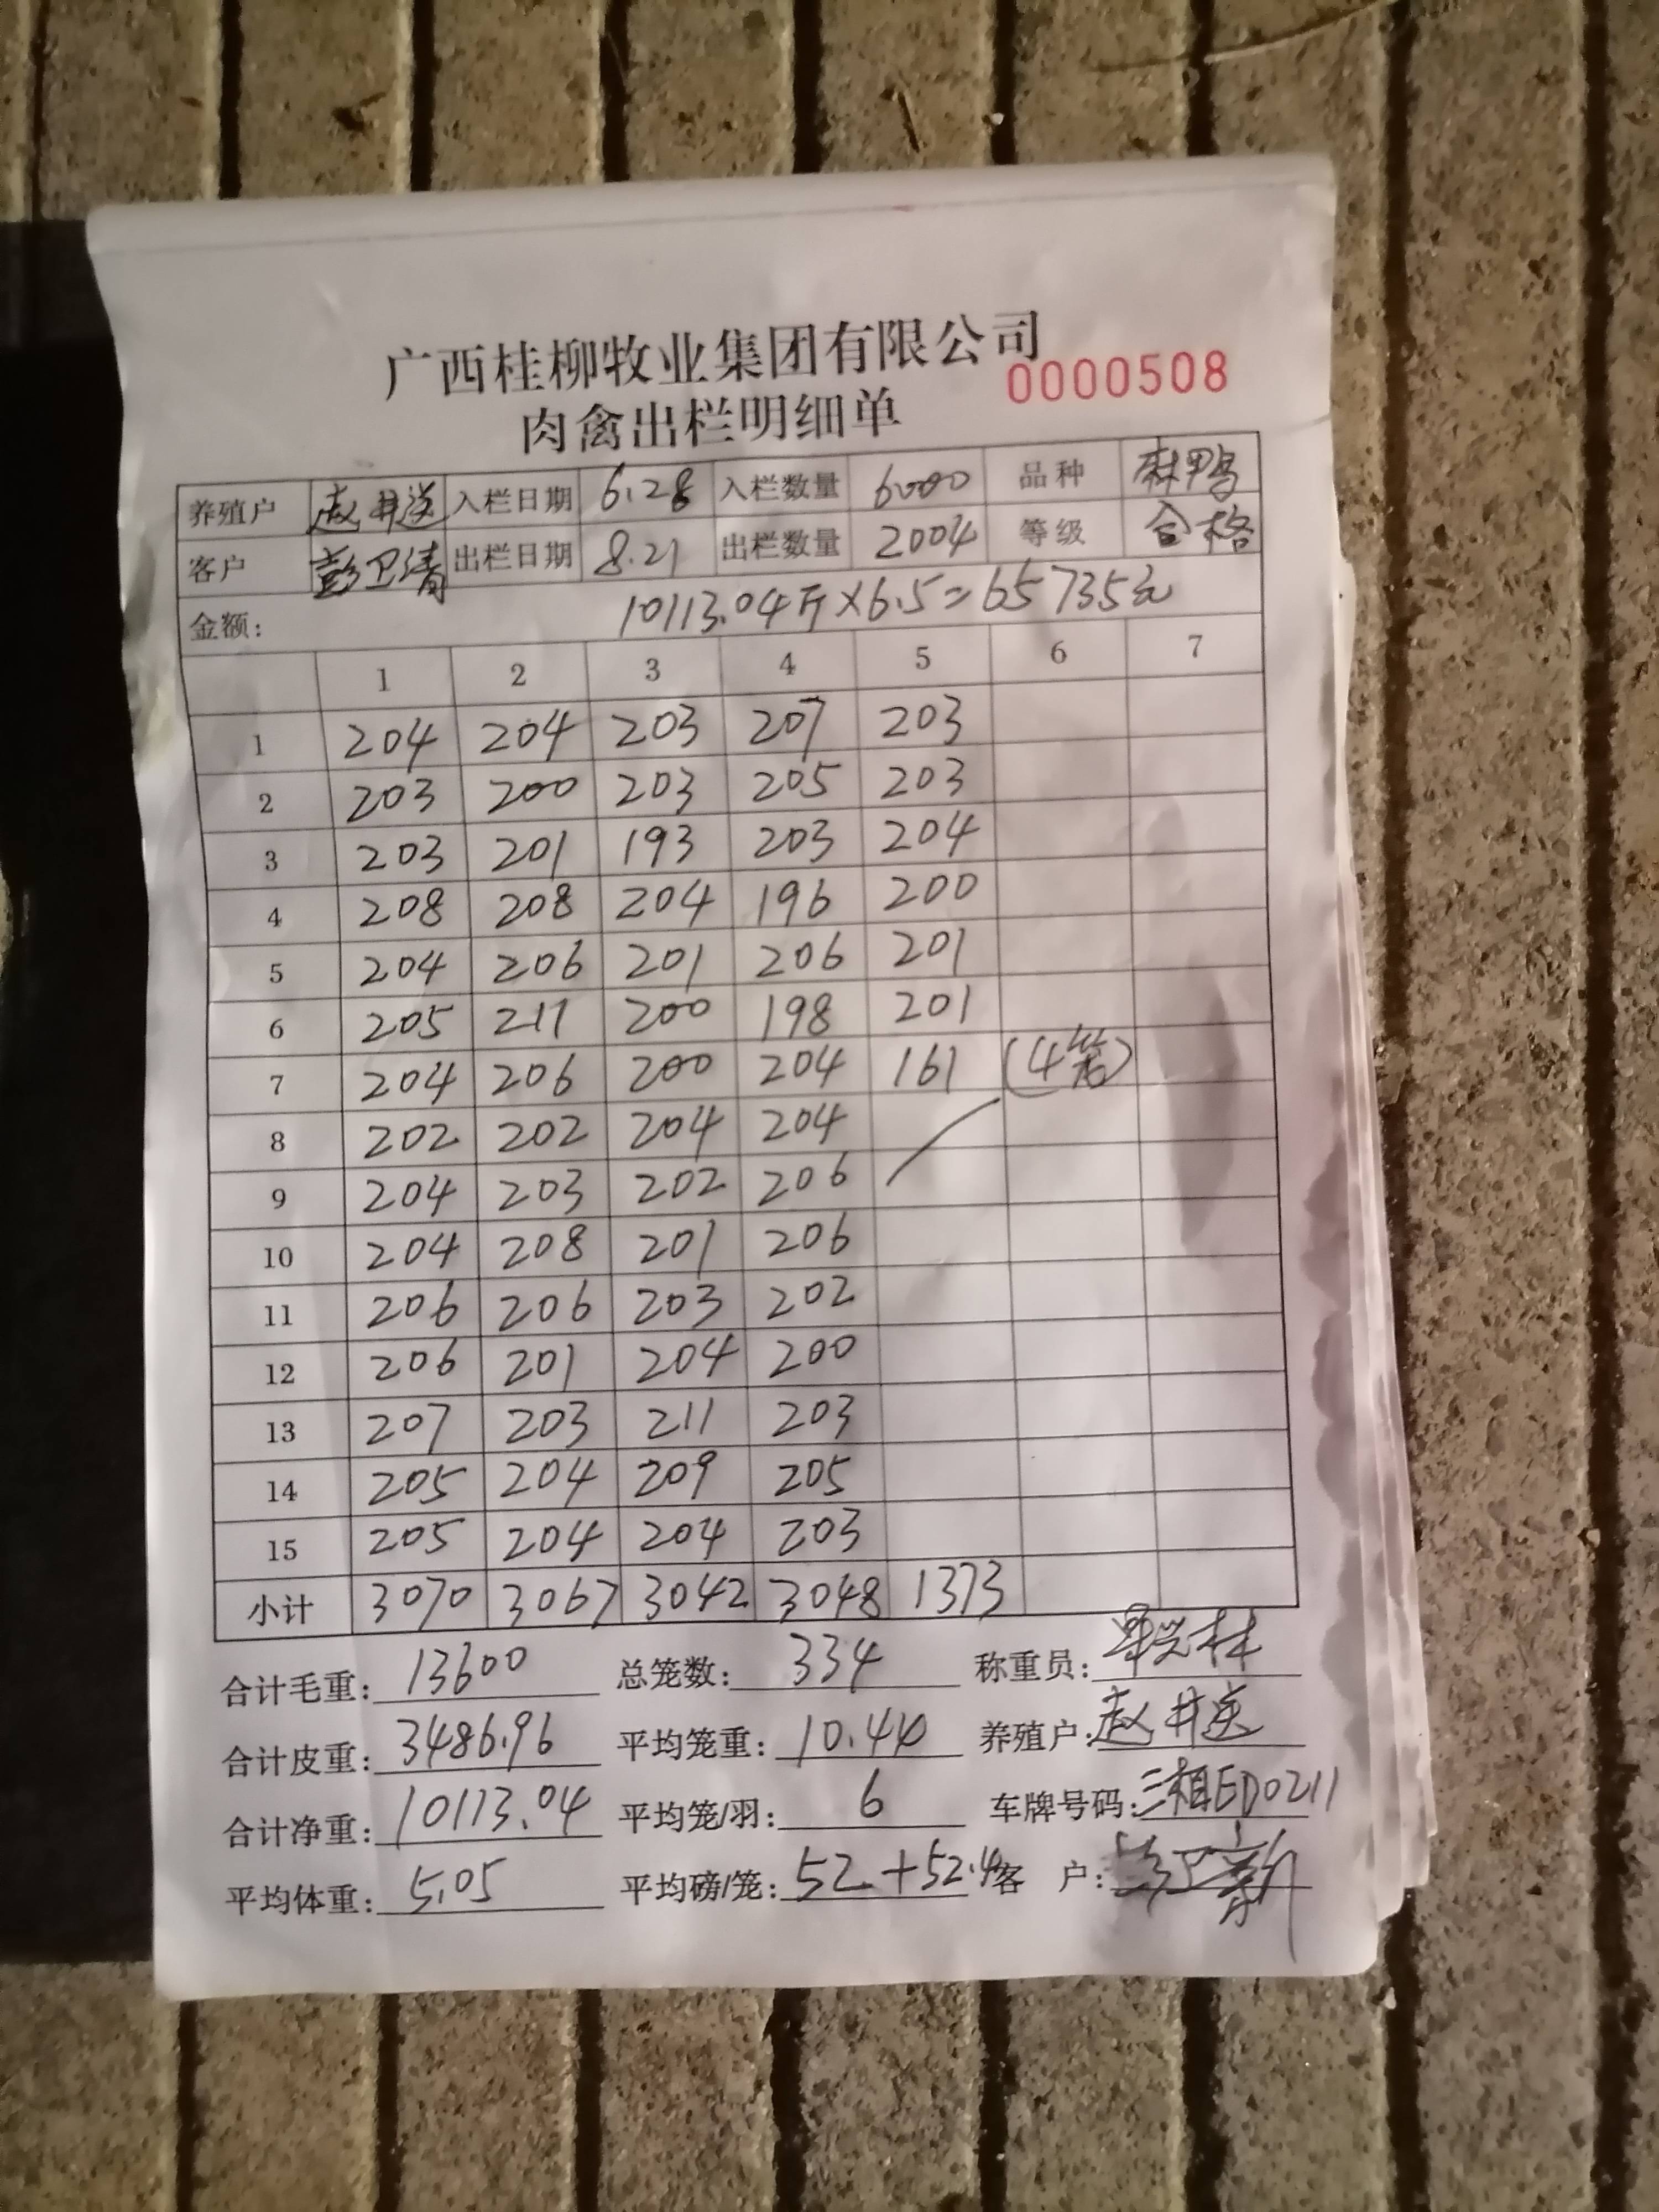 广西桂柳牧业集团有限公司
0000508
肉禽出栏明细单
养殖户 赵井送 入栏日期 6.28 入栏数量 6000 品种 麻鸭
客户 彭卫清 出栏日期 8.21 出栏数量 2004 等级 合格
金额: 10113.04斤×6.5=65735元
1 2 3 4 5 6 7
1 204 204 203 207 203
2 203 200 203 205 203
3 203 201 193 203 204
4 208 208 204 196 200
5 204 206 201 206 201
6 205 211 200 198 201
7 204 206 200 204 161 (4笼)
8 202 202 204 204
9 204 203 202 206
10 204 208 201 206
11 206 206 203 202
12 206 201 204 200
13 207 203 211 203
14 205 204 209 205
15 205 204 204 203
小计 3070 3067 3042 3048 1373
合计毛重: 13600 总笼数: 334 称重员:
合计皮重: 3486.96 平均笼重: 10.44 养殖户: 赵井送
合计净重: 10113.04 平均笼/羽: 6 车牌号码: 湘ED0211
平均体重: 5.05 平均磅/笼: 52+52.4 客 户: